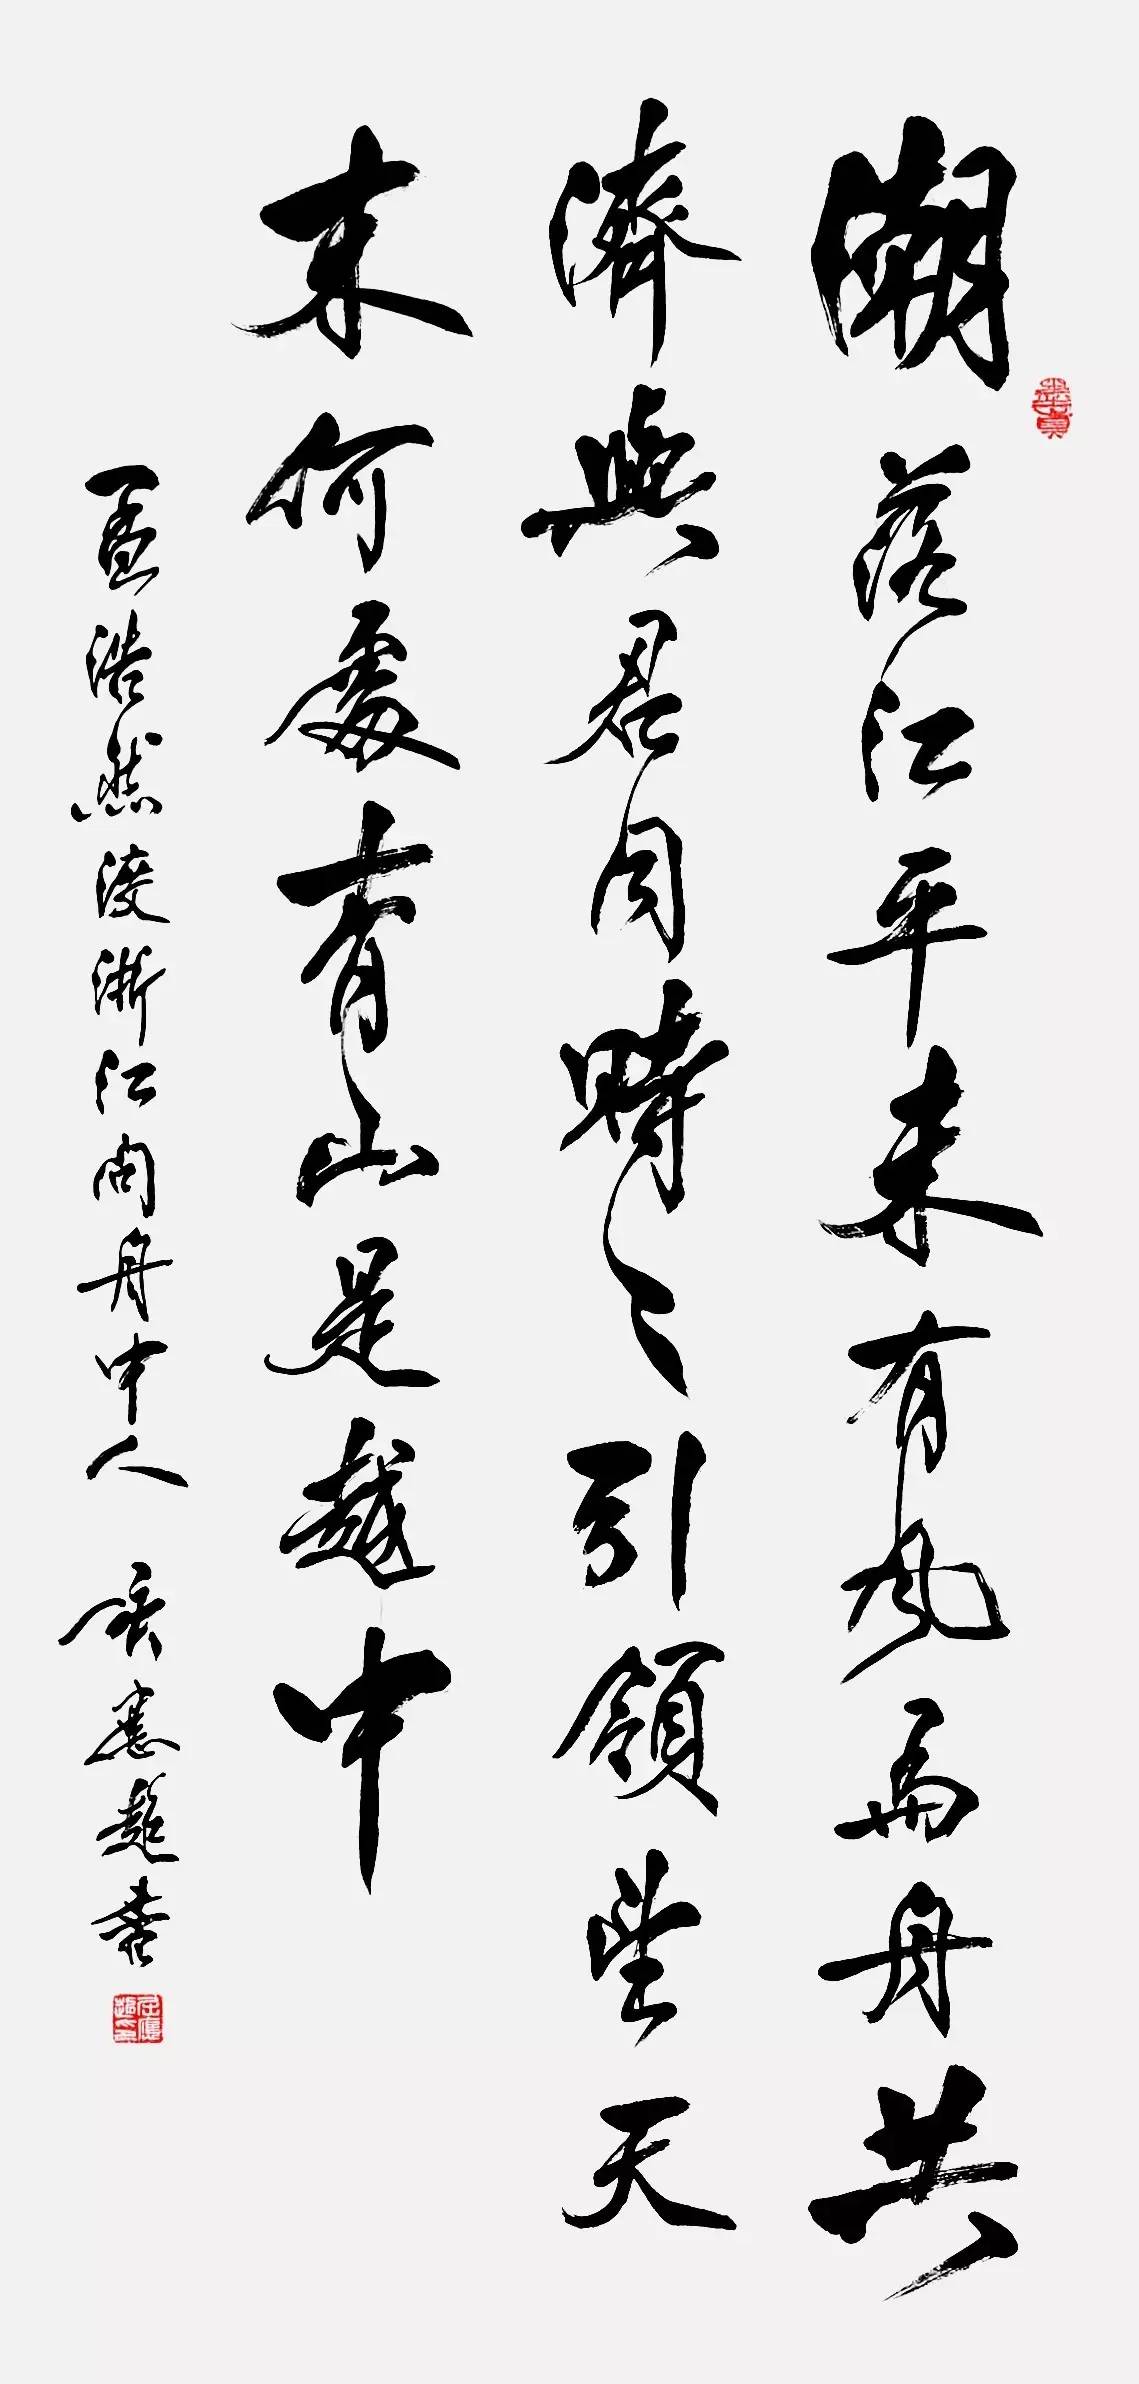 潮落江平未有風扁舟共
濟與君同時〻引領望天
末何處青山是越中
孟浩然渡浙江問舟中人 屈應超書